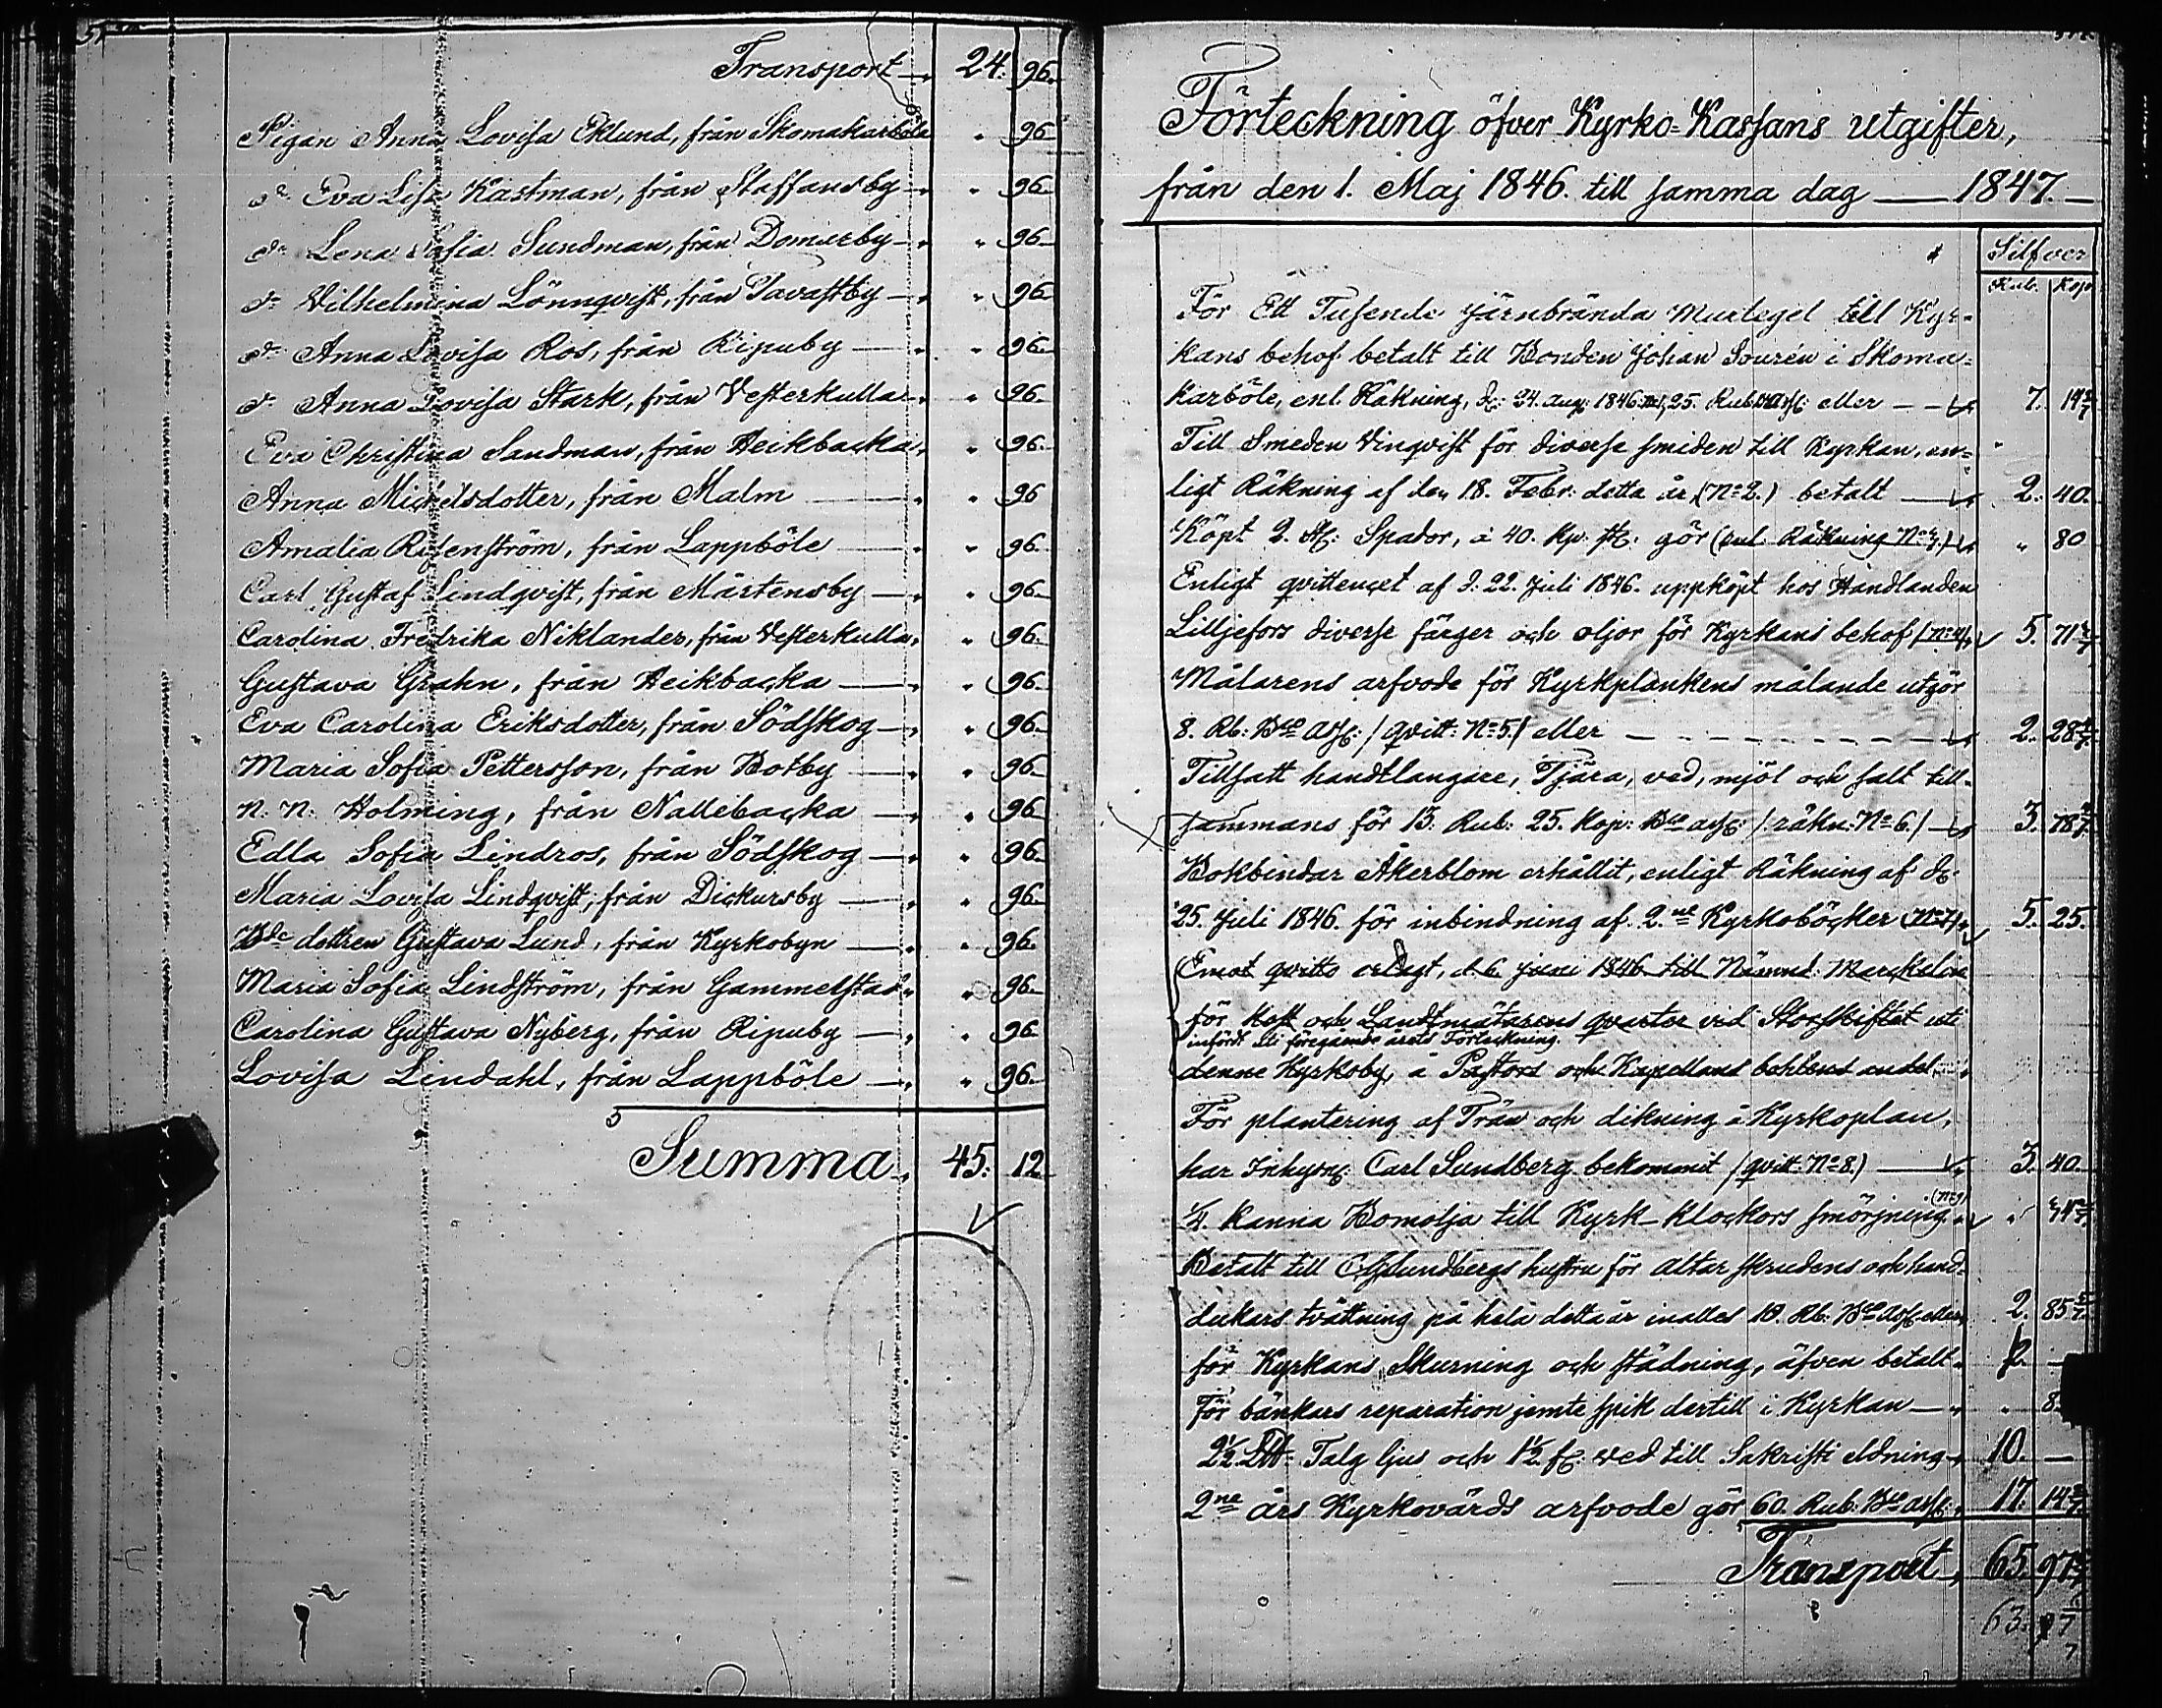 Transport 24. 96.
Pigan Anna Lovisa Eklund, från Skomakarböle " 96
do Eva Lisa Kastman, från Staffansby " 96
do Lena Sofia Sundman, från Domarby " 96
do Vilhelmina Lönnqvist, från Tavastby " 96
do Anna Lovisa Ros, från Ripuby " 96
do Anna Lovisa Stark, från Vesterkulla " 96.
Eva Christina Sandman, från Heikbacka " 96.
Anna Michelsdotter, från Malm " 96
Amalia Rosenström, från Lappböle " 96
Carl Gustaf Lindqvist, från Mårtensby " 96
Carolina Fredrika Niklander, från Vesterkulla " 96.
Gustava Grahn, från Heikbacka " 96.
Eva Carolina Eriksdotter, från Södskog " 96.
Maria Sofia Pettersson, från Botby " 96.
N. N. Holming, från Nallebacka " 96
Edla Sofia Lindros, från Södskog " 96.
Maria Lovisa Lindqvist, från Dickursby " 96.
Bde dottren Gustava Lund, från Kyrkobyn " 96
Maria Sofia Lindström, från Gammelstad " 96.
Carolina Gustava Nyberg, från Ripuby " 96
Lovisa Lindahl, från Lappböle " 96.
Summa 45. 12
Förteckning öfver Kyrko-Kassans utgifter,
från den 1. Maj 1846. till samma dag — 1847. —
Silfver
Rub. Kop.
För Ett Tusende järnbrända Murtegel till Kyr-
kans behof betalt till Bonden Johan Sourén i Skoma-
karböle, enl. Räkning, d: 24. Aug: 1846. 25. Rub. eller 7. 14 2/7
Till Smeden Vinqvist för diverse smiden till Kyrkan, en-
ligt Räkning af den 18. Febr: detta år (No 2.) betalt 2. 40.
Köpt 2. st: Spador, à 40. Kp. st: gör (enl. Räkning No 3.) " 80
Enligt qvittencet af d. 22. Juli 1846. uppköpt hos Handlanden
Lilljefors diverse färger och oljor för Kyrkans behof (No 4) 5. 71 3/7
Målarens arfvode för Kyrkplankens målande utgör
8. Rb: Bco Ass: (qvitt: No 5.) eller 2. 28 4/7
Tillsatt handtlangare, Tjära, ved, mjöl och salt till-
sammans för 13. Rub: 25. Kop: Bco ass: (räkn: No 6.) 3. 78 4/7
Bokbindar Åkerblom erhållit, enligt Räkning af d:
25. Juli 1846. för inbindning af 2.ne Kyrkoböcker (No 7) 5. 25.
Emot qvitto erlagt, d. 6 juni 1846 till Nämnd: Marckelin
för kost och Landtmätarens qvarter vid Storskiftet uti
infördt uti föregående årets Förteckning.
denne Kyrkoby, å Pastors och Kapellans andel
För plantering af Trän och dikning å Kyrkoplan,
har Inhys: Carl Sundberg bekommit (qvitt: No 8.) 3. 40.
1/4. Kanna Bomolja till Kyrk-klockors smörjning (No 9)
Betalt till C. G. Sundbergs hustru för altar skrudens och hand-
dukars tvättning på hela detta år inalles 10. Rb: Bco Ass: eller 2. 85 5/7
för Kyrkans Skurning och städning, äfven betalt 2. —
För bänkars reparation jemte spik dertill i Kyrkan " 8
2 1/2 Talg ljus och 1 1/2 f: ved till Sakristi eldning 10. —
2ne års Kyrkovärds arfvode gör 60. Rub: Bco ass: 17. 14 2/7
Transport 65. 97
63.